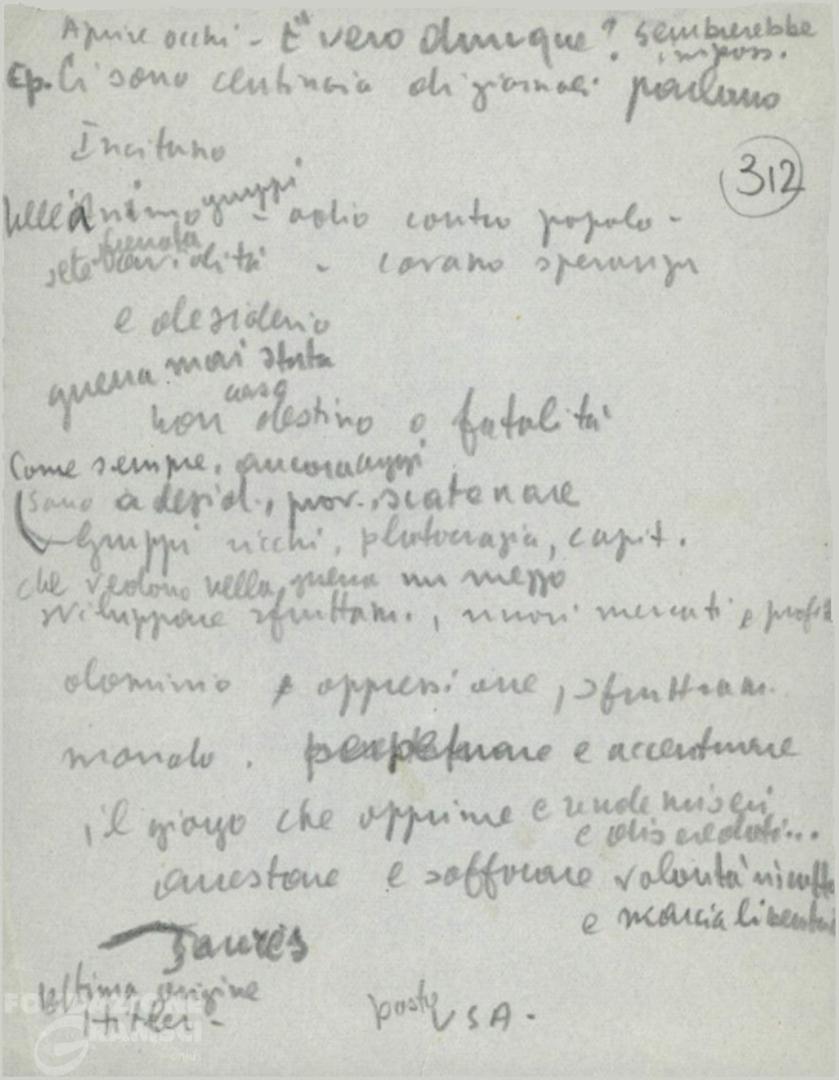 Aprire occhi - E' vero dunque? sembrerebbe
imposs.
Ep. Ci sono centinaia di giornali parlano
Incitano
312
Nell'animo gruppi - odio contro popolo -
sete - covano speranza
e desiderio
guerra mai stata
cosa
non destino o fatalità
Come sempre, ancora oggi
sono a desid., prov., scatenare
Gruppi ricchi, plutocrazia, capit.
che vedono nella guerra un mezzo
sviluppare sfruttam., nuovi mercati e profitti
dominio e oppressione, sfruttam.
mondo. perpetuare e accentuare
il giogo che opprime e rende miseri
e diseredati...
arrestare e soffocare volontà
e marcia
Jaurès
Ultima origine
Hitler - posto USA -
FONDAZIONE
GRAMSCI
onlus